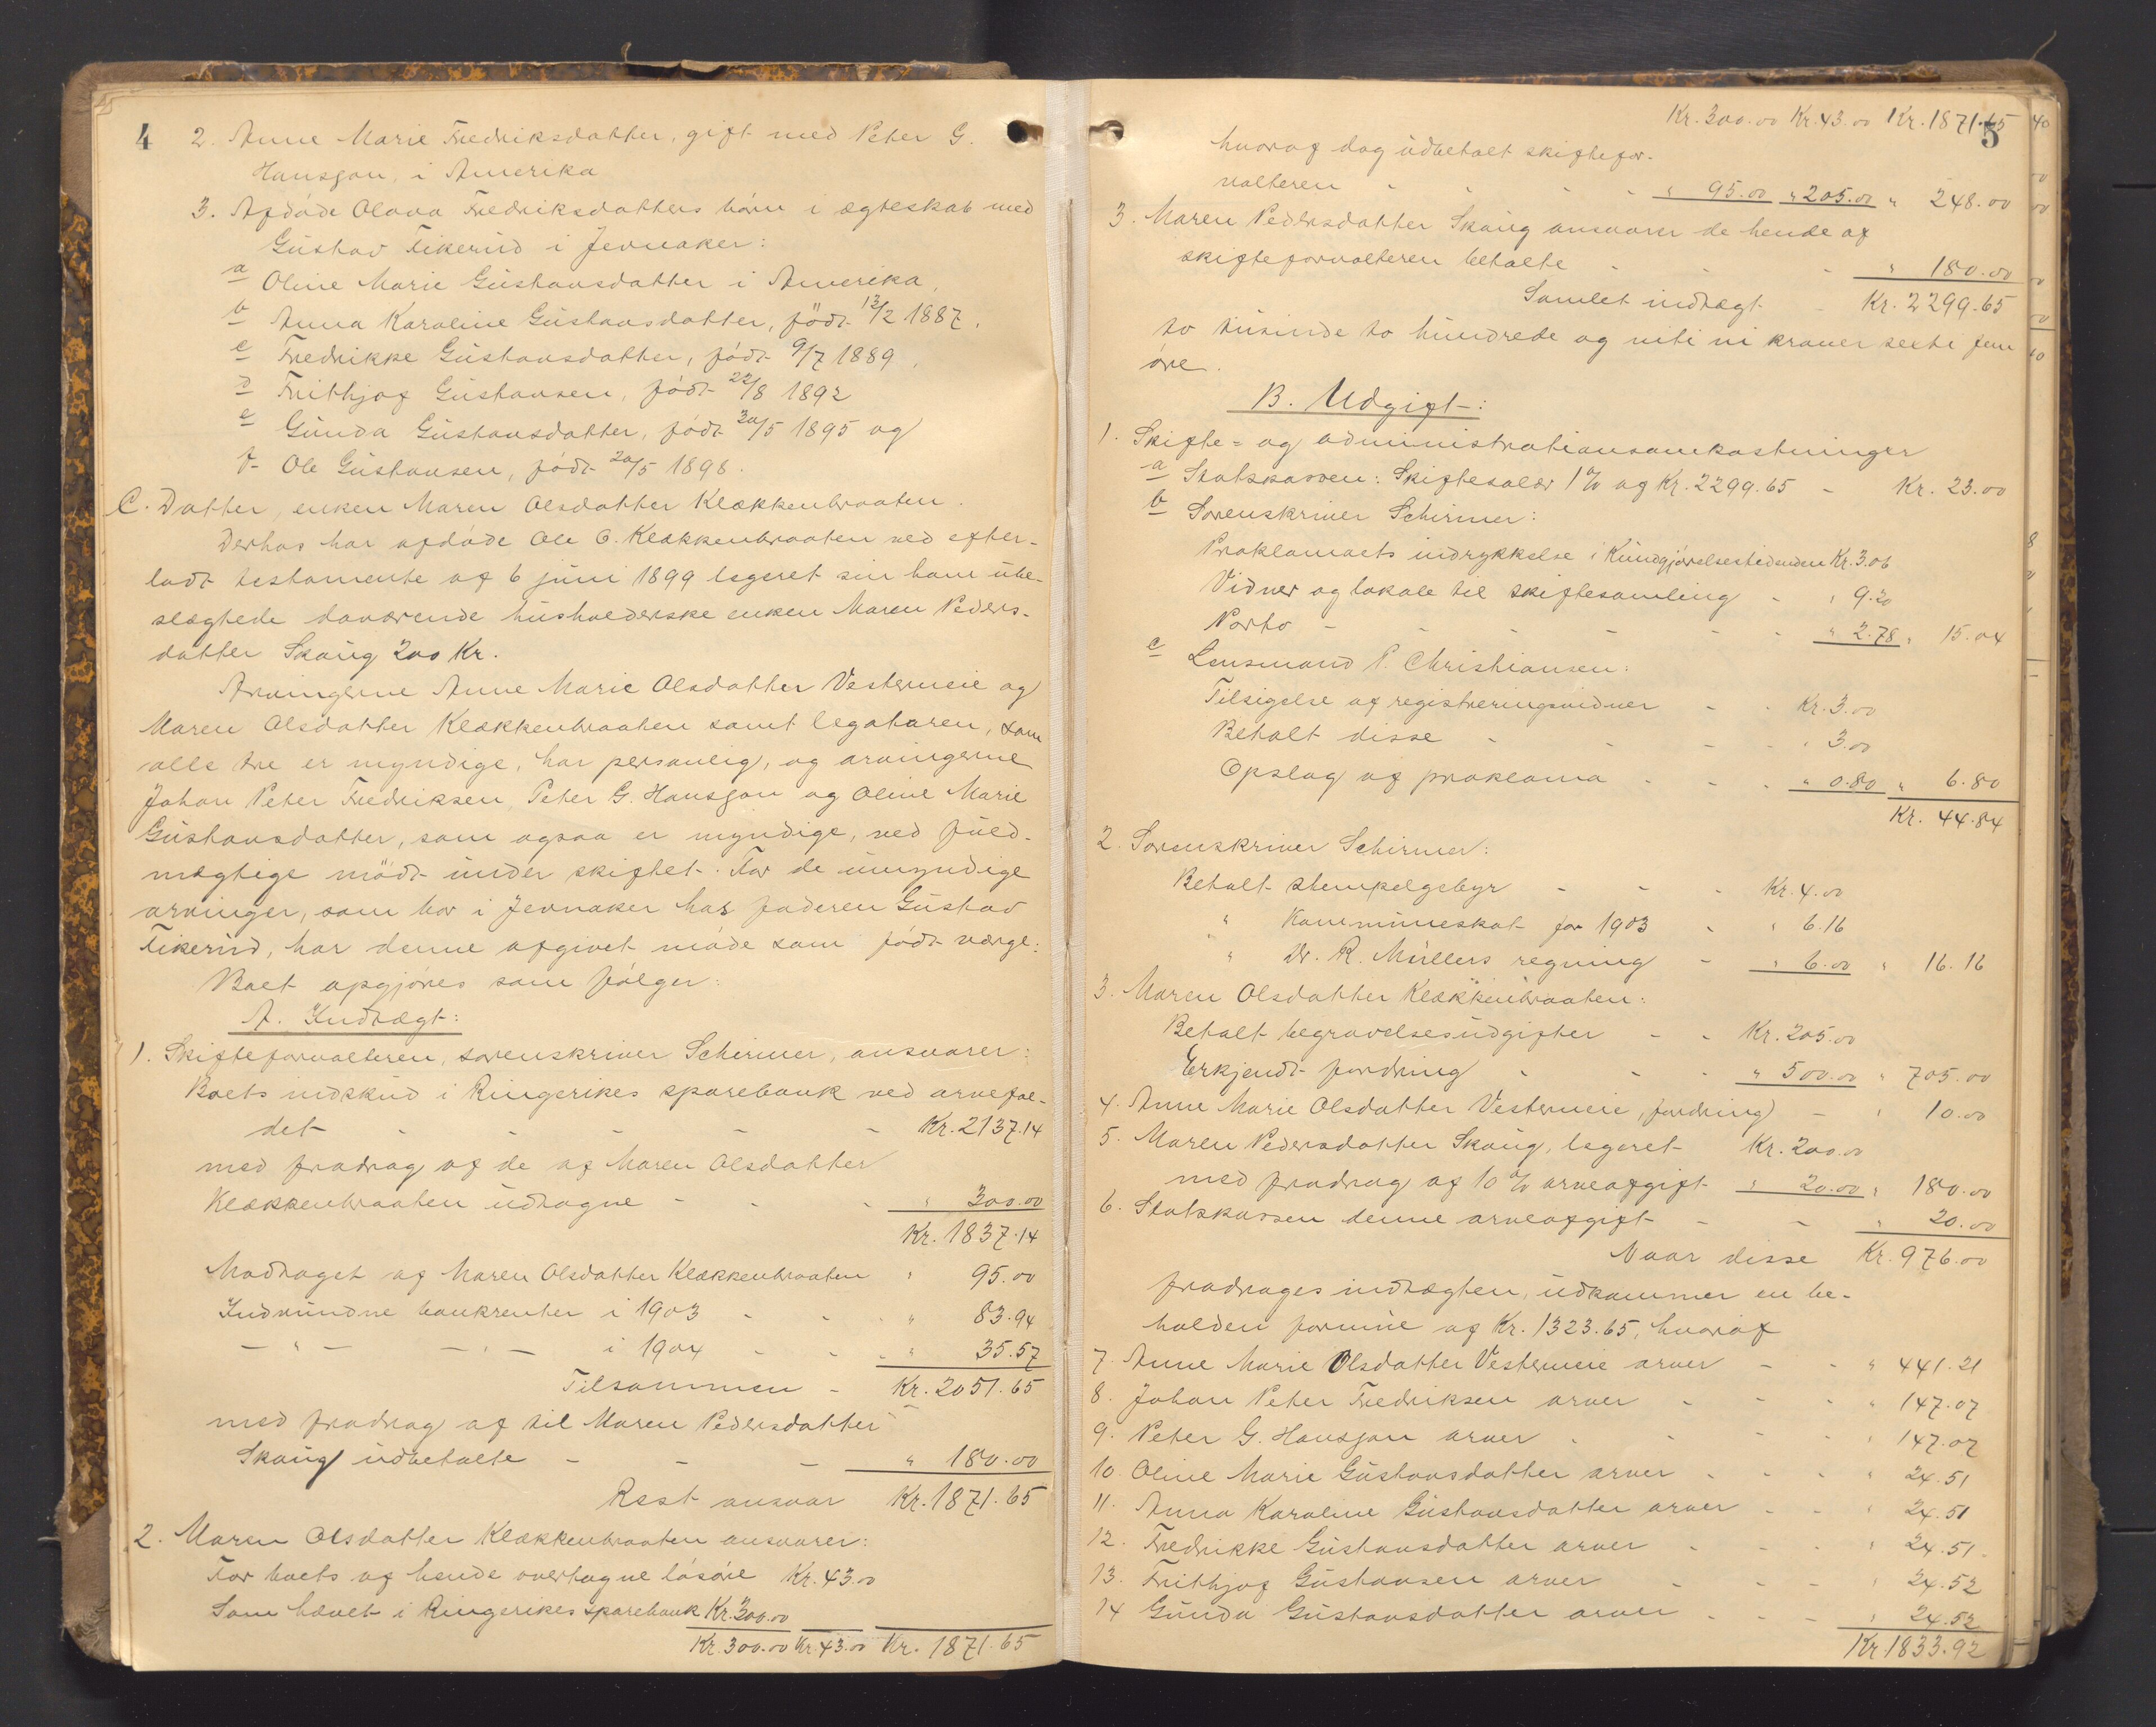 4
2. Anne Marie Fredriksdatter, gift med Peter G.
Hansson, i Amerika
3. Afdøde Olava Fredriksdatters børn i ægteskab med
Gustav Fikerud i Jevnaker:
a Oline Marie Gustavsdatter i Amerika,
b Anna Karoline Gustavsdatter, født 13/2 1887,
c Fredrikke Gustavsdatter, født 9/7 1889,
d Frithjof Gustavsen, født 22/8 1892
e Gunda Gustavsdatter, født 30/5 1895 og
f Ole Gustavsen, født 20/5 1898.
C. Datter, enken Maren Olsdatter Klækkenbraaten.
Derhos har afdøde Ole O. Klækkenbraaten ved efter-
ladt testamente af 6 juni 1899 legeret sin ham ube-
slægtede daværende husholderske enken Maren Peders-
datter Skaug 200 Kr.
Arvingerne Anne Marie Olsdatter Vesterneie og
Maren Olsdatter Klækkenbraaten samt legataren, som
alle tre er myndige, har personlig, og arvingerne
Johan Peter Fredriksen, Peter G. Hansson og Oline Marie
Gustavsdatter, som ogsaa er myndige, ved fuld-
mægtige mødt under skiftet. For de umyndige
arvinger, som bor i Jevnaker hos faderen Gustav
Fikerud, har denne afgivet møde som født værge.
Boet opgjøres som følger:
A. Indtægt:
1. Skifteforvalteren, sorenskriver Schirmer, ansvarer:
Boets indskud i Ringerikes sparebank ved arvefal-
det - - - - - Kr. 2137.14
med fradrag af de af Maren Olsdatter
Klækkenbraaten udtagne - - - " 300.00
Kr. 1837.14
Modtaget af Maren Olsdatter Klækkenbraaten " 95.00
Indvundne bankrenter i 1903 - - " 83.94
- " - - " - i 1904 - - - " 35.57
Tilsammen - Kr. 2051.65
med fradrag af til Maren Pedersdatter
Skaug udbetalte - - - " 180.00
Rest ansvar Kr. 1871.65
2. Maren Olsdatter Klækkenbraaten ansvarer:
For boets af hende overtagne løsøre Kr. 43.00
Som hævet i Ringerikes sparebank Kr. 300.00
Kr. 300.00 Kr. 43.00 Kr. 1871.65
Kr. 300.00 Kr. 43.00 Kr. 1871.65
5
hvoraf dog udbetalt skiftefor-
valteren - - - - " 95.00 " 205.00 " 248.00
3. Maren Pedersdatter Skaug ansvarer de hende af
skifteforvalteren betalte - - - " 180.00
Samlet indtægt - Kr. 2299.65
to tusinde to hundrede og niti ni kroner sexti fem
øre.
B. Udgift:
1. Skifte- og administrationsomkostninger
a Statskassen: Skiftesalær 1% af Kr. 2299.65 - Kr. 23.00
b Sorenskriver Schirmer:
Proklamaets indrykkelse i Kundgjørelsestidenden Kr. 3.06
Vidner og lokale til skiftesamling - " 9.20
Porto - - - - - - " 2.78 " 15.04
c Lensmand P. Christiansen:
Tilsigelse af registreringsvidner - - Kr. 3.00
Betalt disse - - - - " 3.00
Opslag af proklama - - - " 0.80 " 6.80
Kr. 44.84
2. Sorenskriver Schirmer:
Betalt stempelgebyr - - - Kr. 4.00
" Kommuneskat for 1903 - " 6.16
" Dr. R. Müllers regning - " 6.00 " 16.16
3. Maren Olsdatter Klækkenbraaten:
Betalt begravelsesudgifter - - Kr. 205.00
Erkjendt fordring - - - " 500.00 " 705.00
4. Anne Marie Olsdatter Vesterneie, fordring - " 10.00
5. Maren Pedersdatter Skaug, legeret Kr. 200.00
med fradrag af 10% arveafgift " 20.00 " 180.00
6. Statskassen denne arveafgift - - " 20.00
Naar disse Kr. 976.00
fradrages indtægten, udkommer en be-
holden formue af Kr. 1323.65, hvoraf
7. Anne Marie Olsdatter Vesterneie arver - - " 441.21
8. Johan Peter Fredriksen arver - - - " 147.07
9. Peter G. Hansson arver - - - - " 147.07
10. Oline Marie Gustavsdatter arver - - - " 24.51
11. Anna Karoline Gustavsdatter arver - - " 24.51
12. Fredrikke Gustavsdatter arver - - - " 24.51
13. Frithjof Gustavsen arver - - - " 24.52
14 Gunda Gustavsdatter arver - - - " 24.52
Kr. 1833.92